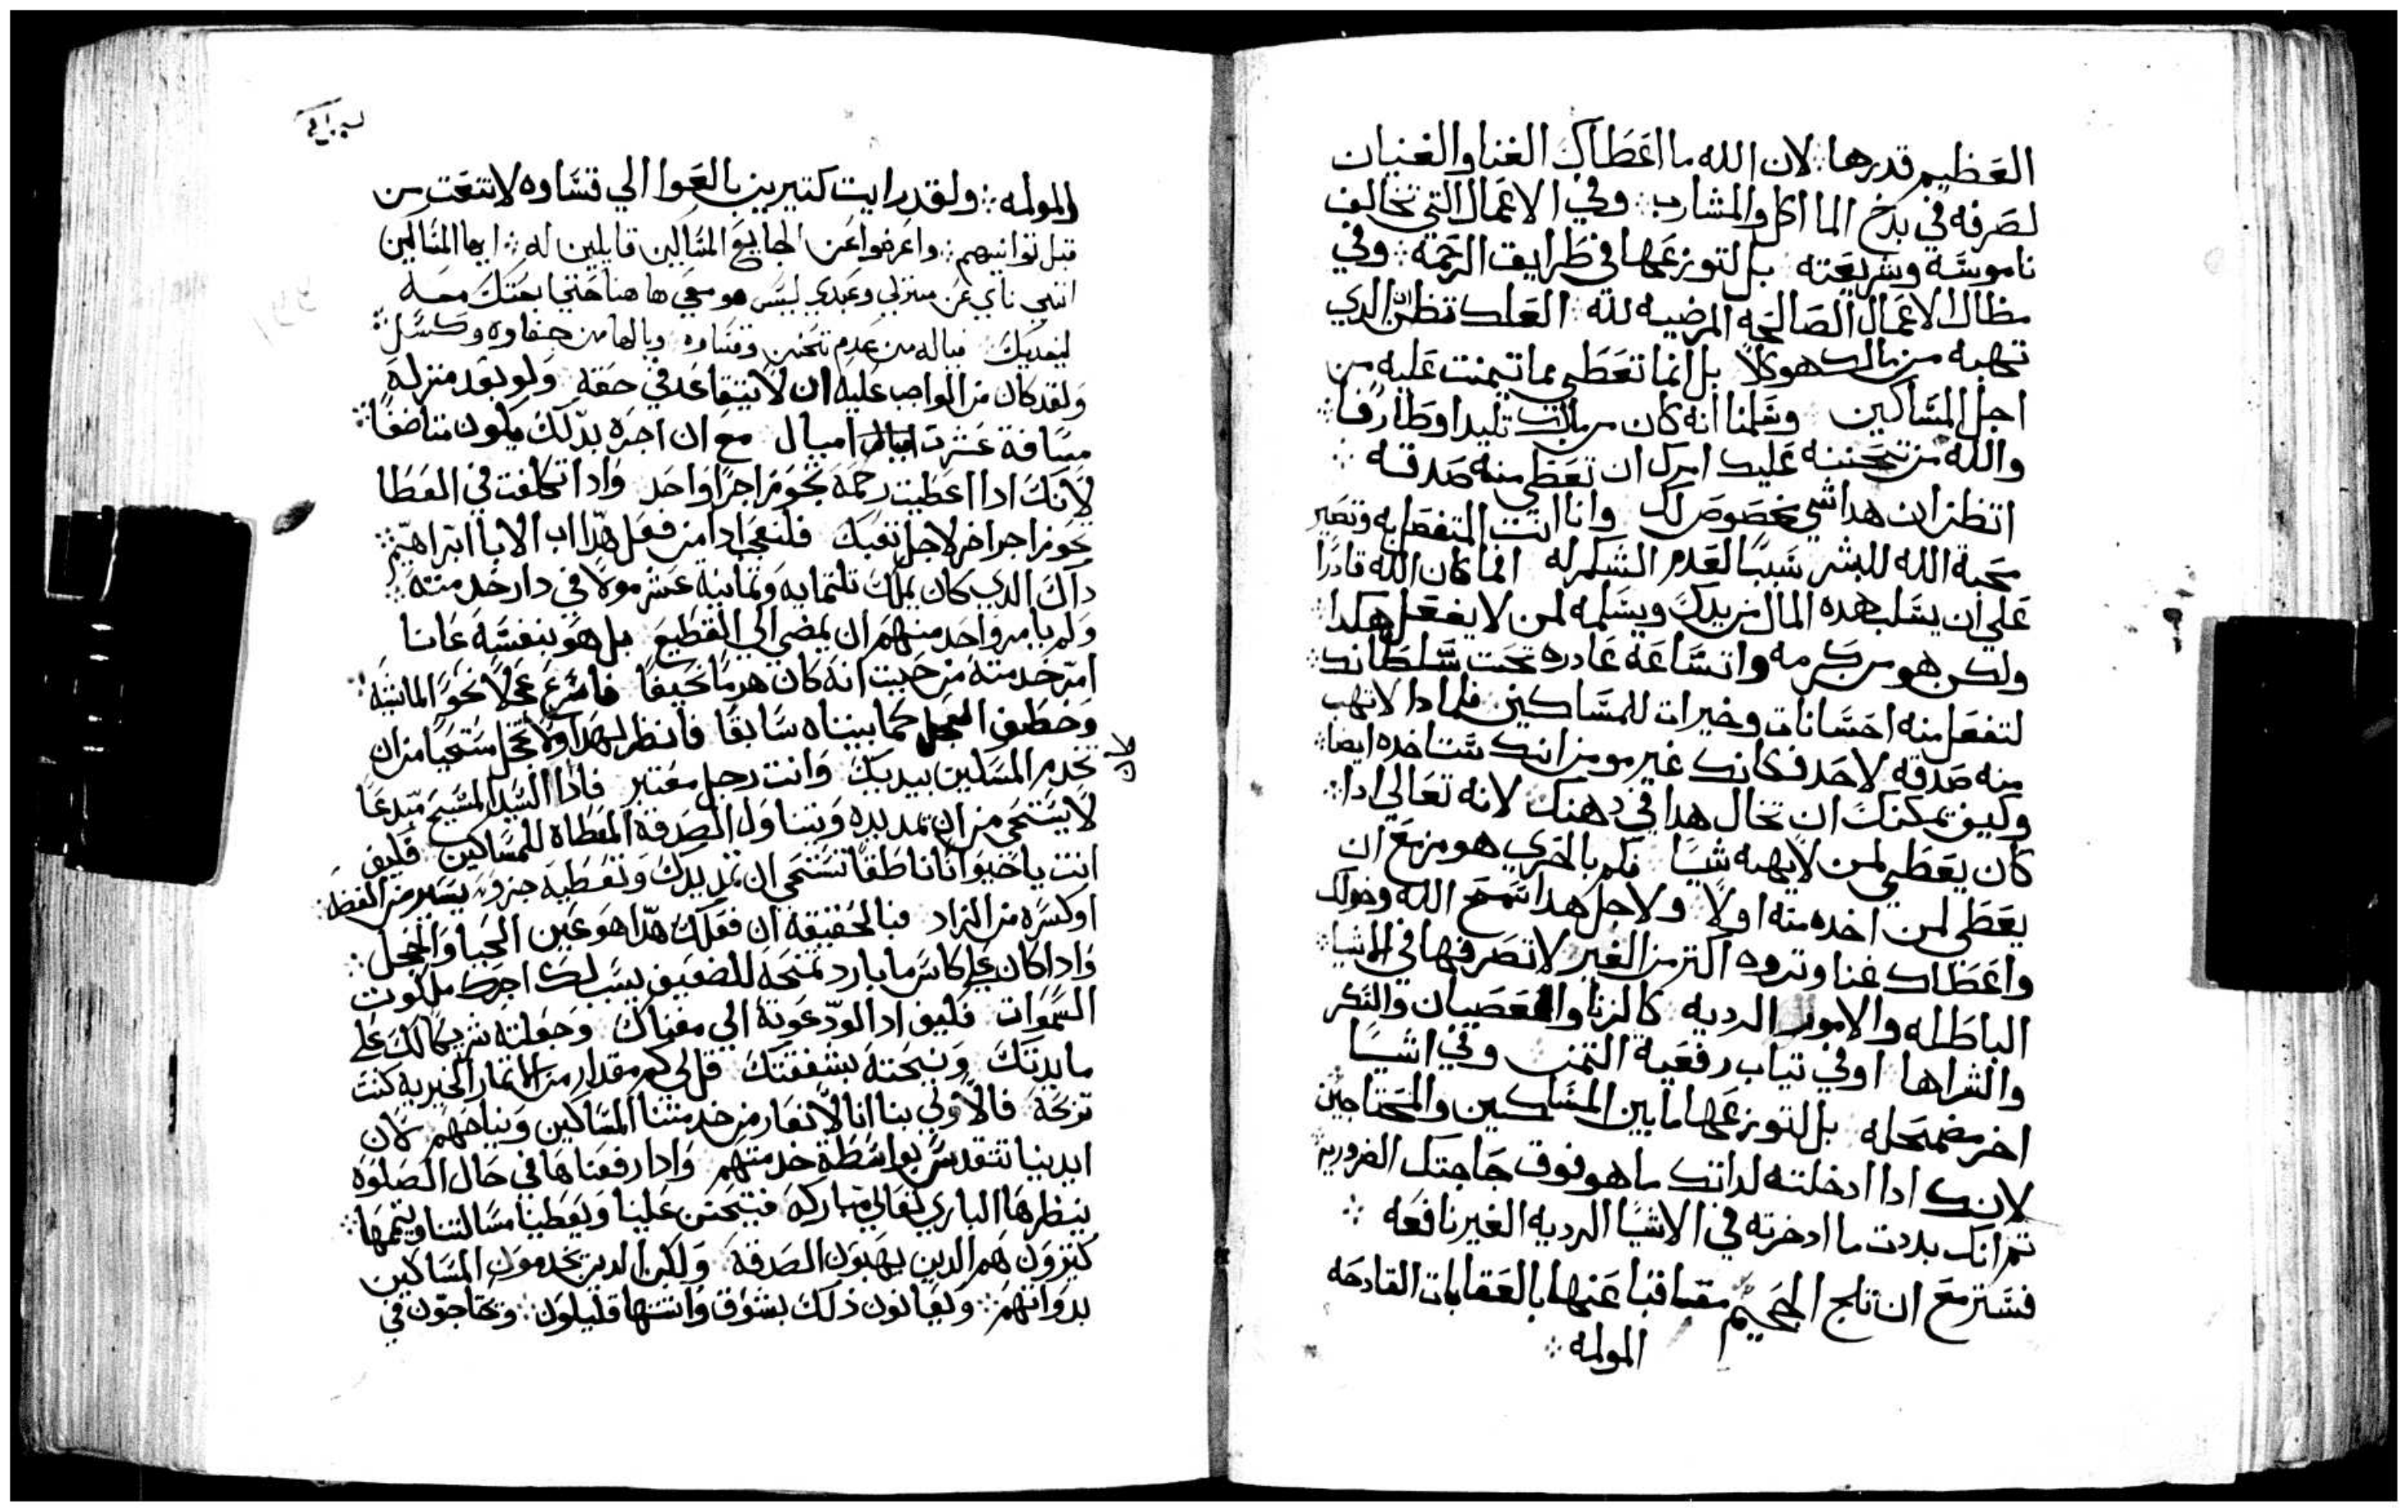 العظيم قدرها ؞ لان الله ما اعطاك الغنا والغنيان
لصرفه في بدخ الماآكل والمشارب ؞ وفي الاعمال التي تخالف
ناموسة وشريعته بل لتوزعها في طرايف الرحمة ؞ وفي
مظال الاعمال الصالحه المرضيه لله ؞ العلك تظن ان الدي
تهبه من مالك هو كلا بل انما تعطي مما تيمنت عليه من
اجل المساكين وسلمنا انه كان من مالك تليدا وطارفا ؞
والله من تحننه عليك امرك ان تعطي منه صدقه ؞
اتظن ان هدا شي يخصوص لك وانا انت المتفضل به وتصير
محبة الله للبشر سببا لعدم الشكر له انما كان الله قادرا
علي ان يسلب هده المال من يدك ويسلمه لمن لا يفعل هكدا ؞
ولكن هو من كرمه واتساعه غادره تحت سلطانك ؞
لتفعل منه احسانات وخيرات للمساكين فلمادا لا تهب
منه صدقه لاحد فكانك غير مومن انك ستاخده ايضا ؞
وكيف تمكنك ان تخال هدا في دهنك لانه تعالي ادا ؞
كان يعطي لمن لا يهبه شيا فكم بالحري هو مزمع ان
يعطي لمن اخده منه اولا ولاجل هدا سمح الله وخولك
واعطاك غنا وتروه اكتر من الغير لا تصرفها في الاشيا ؞
الباطله والامور الرديه كالزنا والعصيان والسكر
والشراها اوفي تياب رفعية التمن وفي اشيا
اخر مضمحله بل لتوزعها ما بين المساكين والمحتاجين
لانك ادا ادخلته لداتك ما هو فوق حاجتك الضروريه
تم انك بددت ما ادخرته في الاشيا الرديه الغير نافعه ؞
فستزمع ان تلج الجحيم معاقبا عنها بالعقابات القادحه
المولمه ؞
والمولمه ؞ ولقد رايت كتيرين بالعوا الي قساوه لا تنعت من
قبل توانيهم ؞ واعرضوا عن الجايع المسالين قايلين له ؞ ايها المسالين
انني ناي عن منزلي وعبدي ليس هو معي ها هنا
فياله من عدم تحنن وقساوه ويالها من جفاوه وكسل ؞
ولقد كان من الواجب عليه ان لا يتقاعد في حقه ولو بعد منزله
مسافة عشرت اميال مع ان اجره بدلك يكون متناضفا ؞
لانك ادا اعطيت رحمه تحوز اجرا واحد وادا تكلفت في العطا
تحوز اجرا اخر لاجل تعبك فلنعجب ادا من فعل هدا اب الابا ابراهيم ؞
داك الدي كان يملك تلتمايه وتمانية عشر مولا في دار خدمته ؞
ولم يامر واحد منهم ان يمضي الي القطيع بل هو بنفسه عانا
امر خدمته من حيت انه كان هرما نحيفا فاسرع عجلا نحو الماشيه ؞
وخطف العجل كما بيناه سابقا فانظر لهدا ولا تخجل مستحيا من ان
تخدم المسكين بيديك وانت رجل معتبر فادا السيد المسيح مبدعا
لا يستحي من ان تمد يده ويتناول الصدقة المعطاة للمساكين فكيف
انت يا حيوانا ناطقا تستحي ان تمد يدك وتعطيه جزو يسير من الفضه ؞
اوكسره من الزاد فبالحقيقه ان فعلك هدا هو عين الحيا والخجل ؞
وادا كان كاس ما بارد تمنحه للضعيف يسبب لك اجرك ملكوت
السموات فكيف ادا لو دعوته الي مغناك وجعلته شريكا لك علي
مايدتك ونيحته بشفقتك قل لي كم مقدار من الاتمار الخيريه كنت
تربحه فالاولي بنا اننا لا نعار من خدمتنا المساكين ونياحهم لان
ايدينا تتقدس بواسطة خدمتهم وادا رفعناها في حال الصلوه
ينظرها الباري تعالي مباركه فيتحنن علينا ويعطينا مسالتنا ويتمها ؞
كتيرون هم الدين يهبون الصدقة ولكن الدين يخدمون المساكين
بدواتهم ؞ ويعانون ذلك بشوق واشتها قليلون ؞ ويحتاجون في